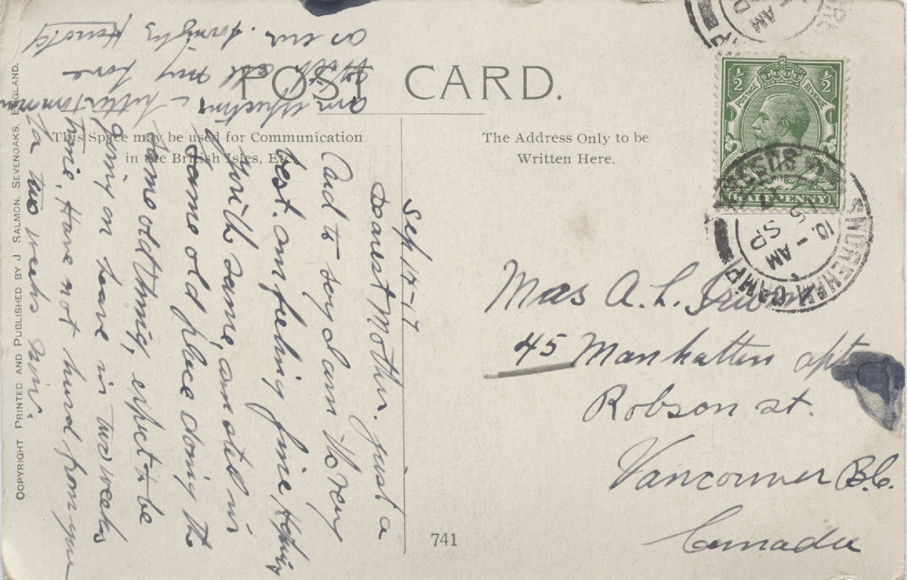 POST CARD.
This Space may be used for Communication
in the British Isles, Etc.
The Address Only to be
Written Here.
COPYRIGHT PRINTED AND PUBLISHED BY J SALMON, SEVENOAKS, ENGLAND.
Sep 14-17
Dearest Mother. just a
Card to say I am the very
best. am feeling fine, Hoping
your the same, am still in
same old place doing the
same old thing, expect to be
going on leave in two weeks
time. Have not heard from you
for two weeks now.
am expecting a letter tommorrow
with all my love
as ever.
Harold
½ ½
POSTAGE REVENUE
HALFPENNY
SHOREHAM CAMP
SUSSEX
10 - AM
SP
15
17
Mrs A. L.
45 Manhatten apts
Robson st.
Vancouver B.C.
Canada
741